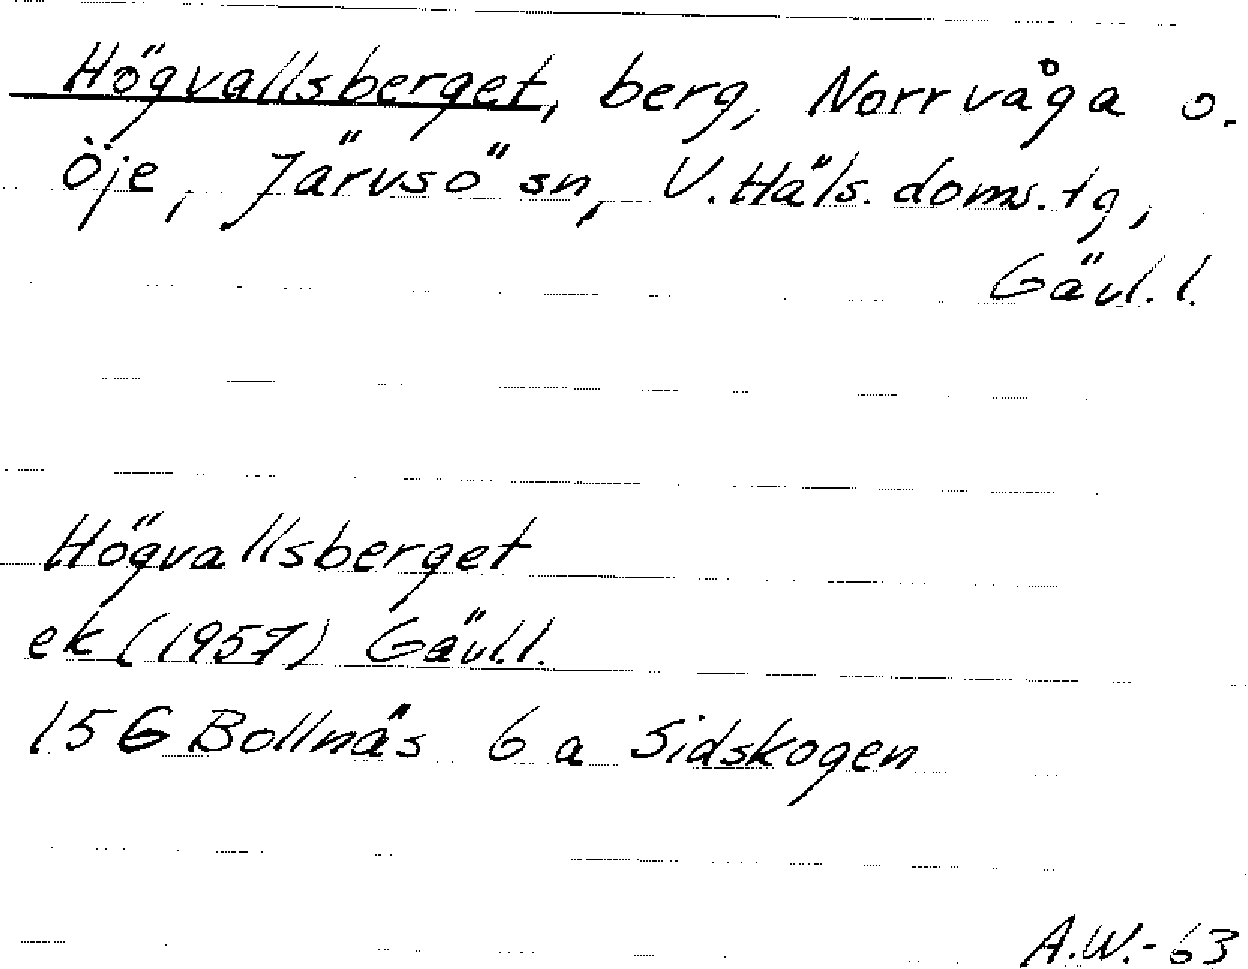 Högvallsberget, berg, Norrvåga o.
Öje, Järvsö sn, V. Häls. doms. tg,
Gävl. l.
Högvallsberget
ek (1957) Gävl. l.
15G Bollnäs 6 a Sidskogen
A.W.-63